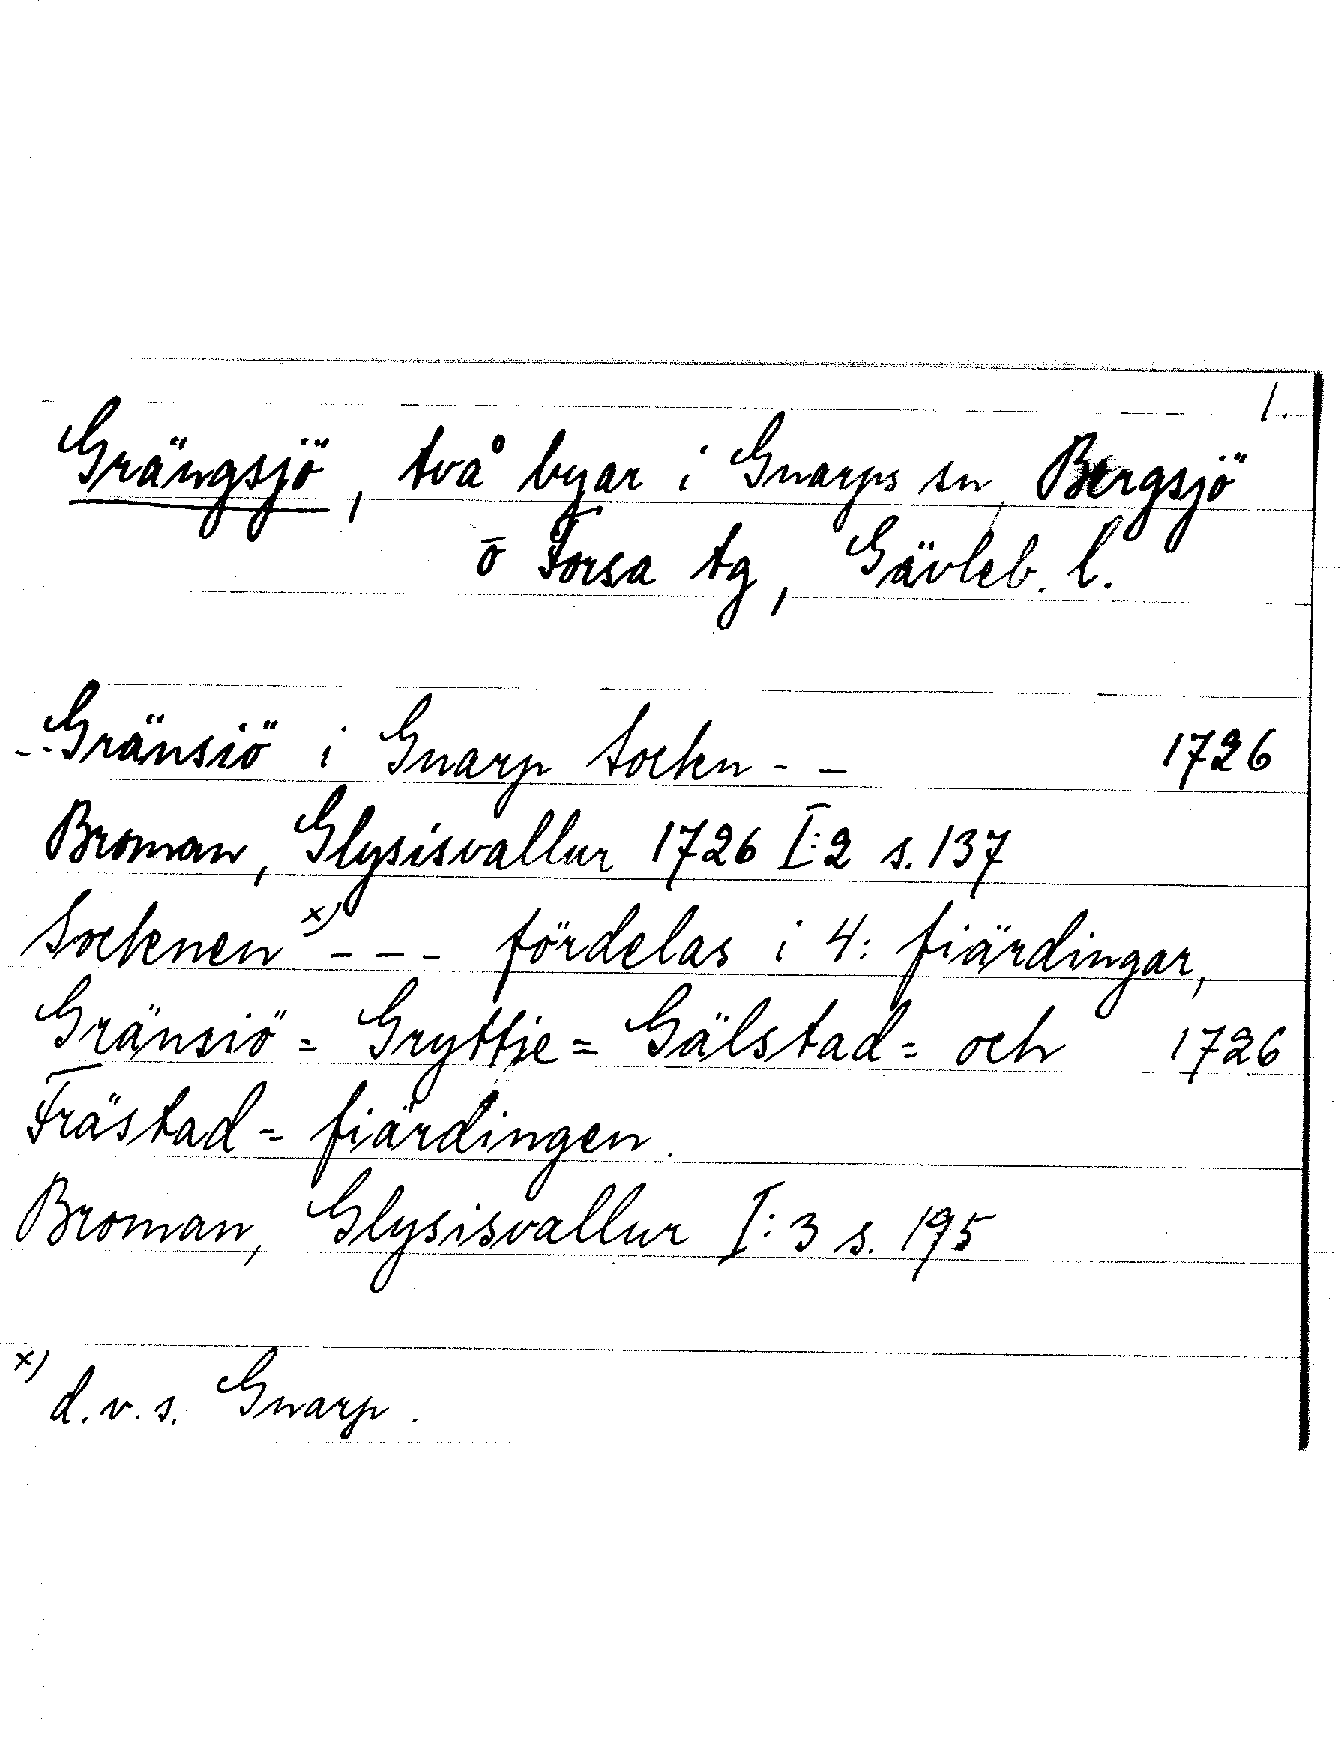 1.
Grängsjö, två byar i Gnarps sn, Bergsjö
o Forsa tg, Gävleb. l.
- - Gränsiö i Gnarp Sockn - - 1726
Broman, Glysisvallur 1726 I:2 s. 137
Socknen x) - - - fördelas i 4: fiärdingar,
Gränsiö = Gryttje = Gälstad = och 1726
Frästad = fiärdingen.
Broman, Glysisvallur I:3 s. 195
x) d.v.s. Gnarp.